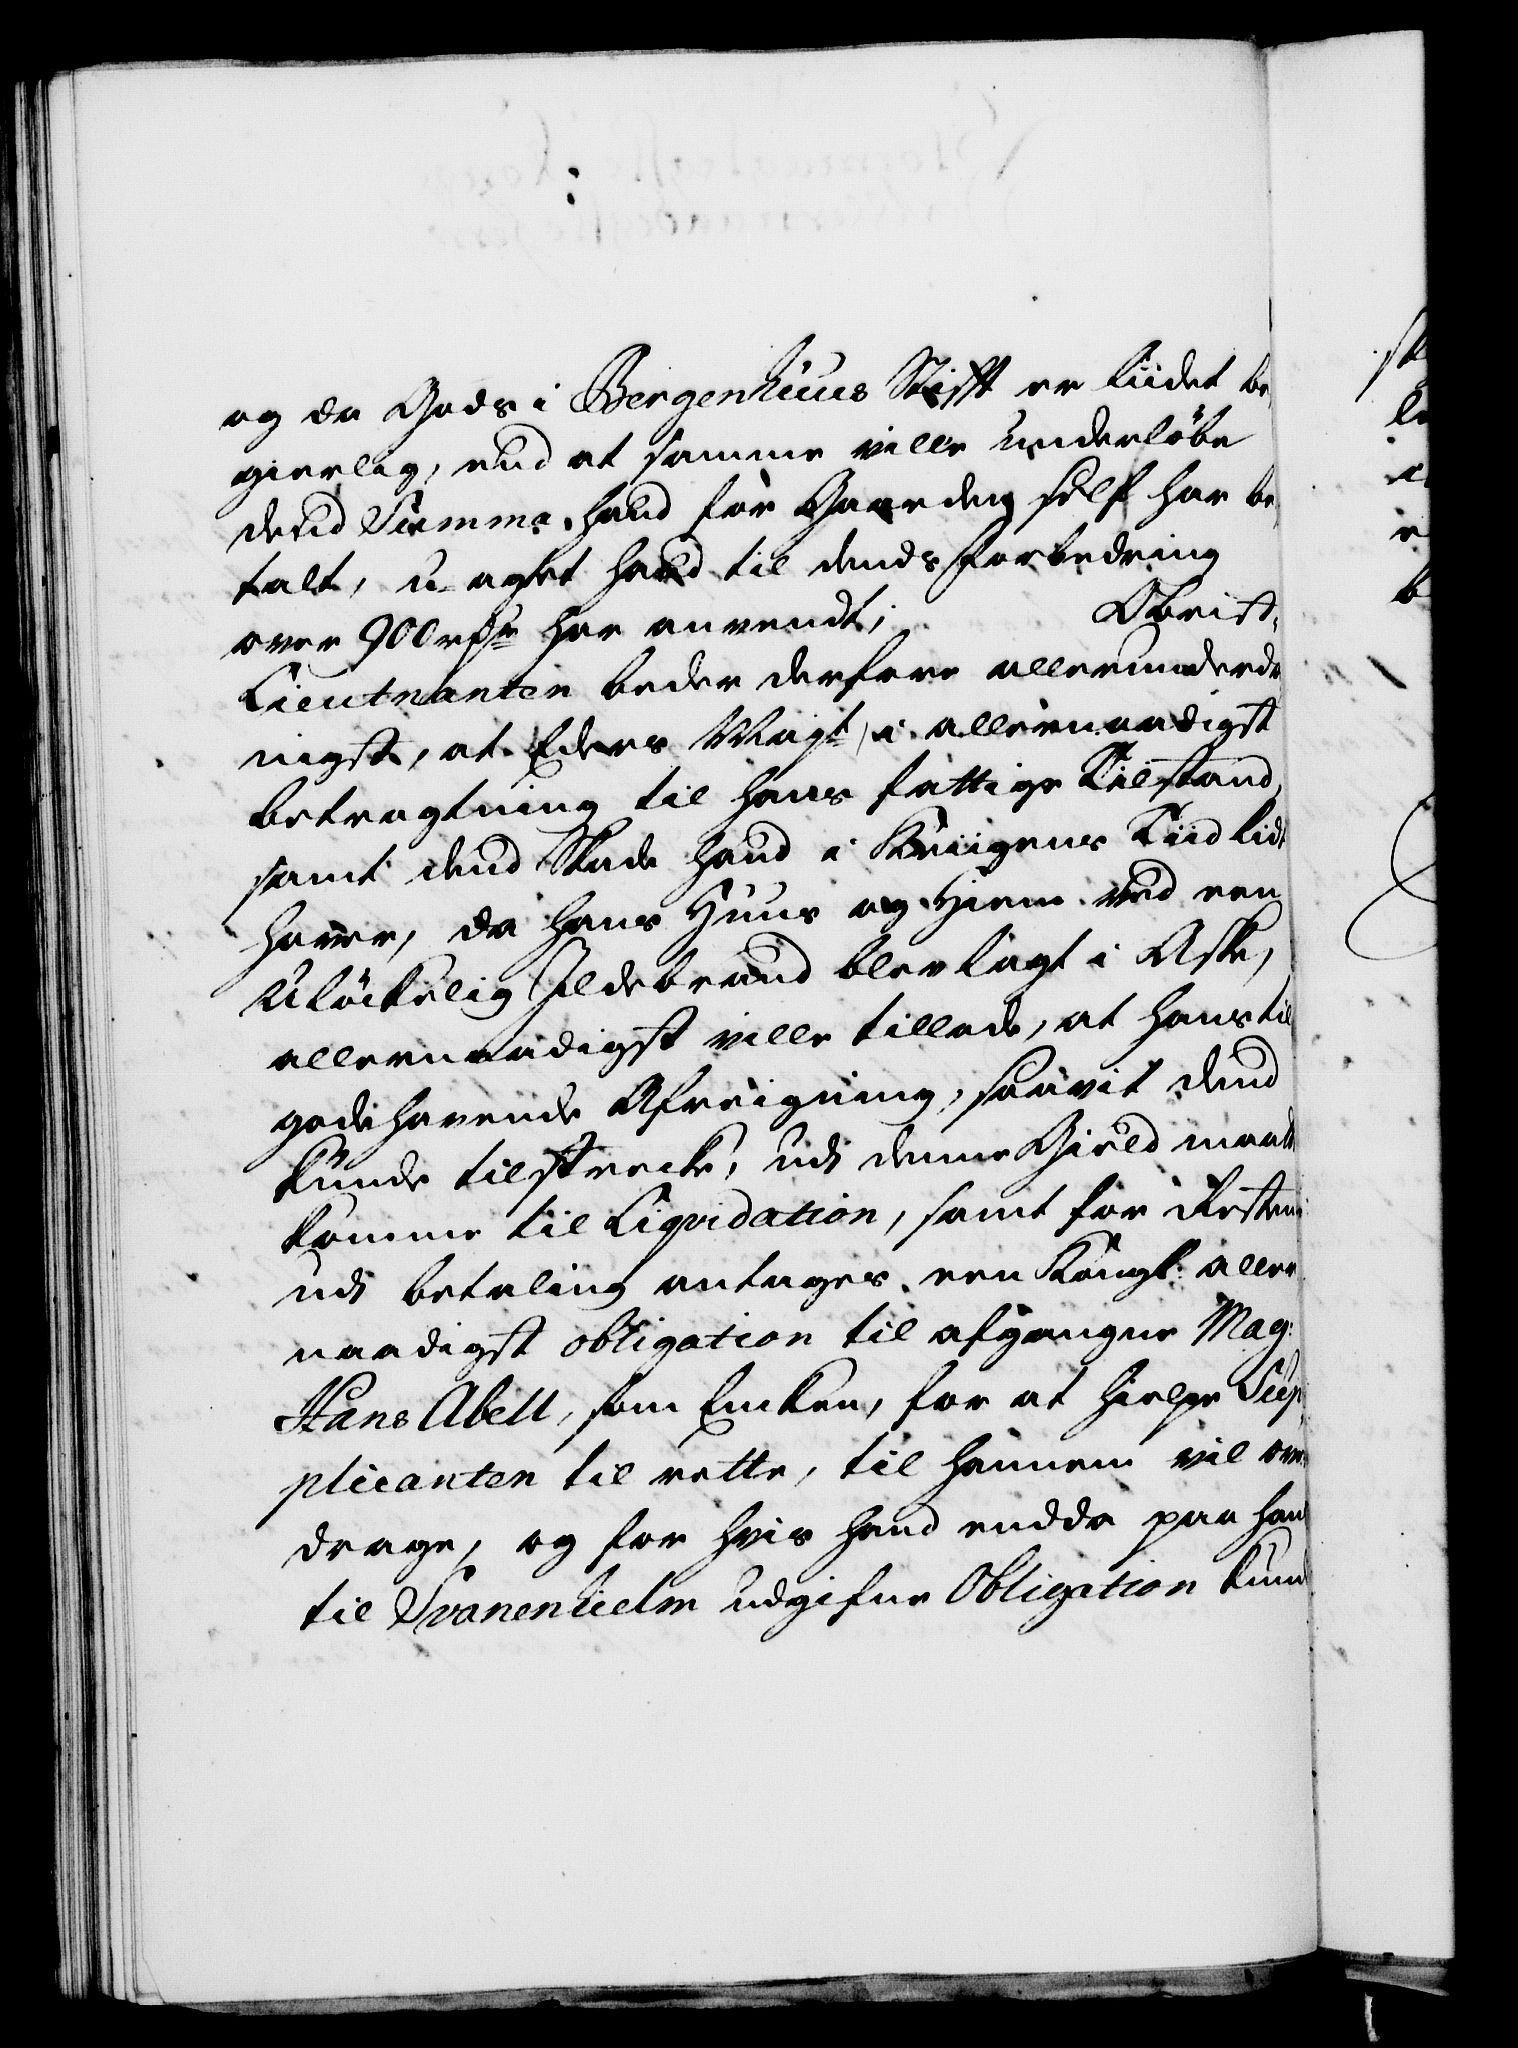 og da Gods i Bergenhuus Stifft er lidet be„
gierlig, end at samme ville underløbe
dend Summa, hand for Gaarden sself har be„
talt, u-agtet hand til dends forbedring
over 900 rdr har anvendt; Obrist„
Lieutnanten beder derfore allerunderda
nigst, at Eders Mayt, i allernaadigst
betragtning til hans fattige Tilstand,
samt dend Skade hand i Kriigens Tiid lidt
haver, da hans Huus og Hiem ved een
Uløckelig Ildebrand blev lagt i Aske,
allernaadigst ville tillade, at hans til
godehavende Afreigning, saavit dend
kunde tilstrecke, udj denne Gield maatte
komme til Liqvidation, samt for Resten
udj betaling antages een Kongl: aller
naadigst obligation til afgangne Mag:
Hans Abell, som Enken, for at hielpe Sup„
plicanten til rette, til hannem vil over
drage, og for hvis hand endda paa hans
til Svanenhielm udgifne Obligation kunde